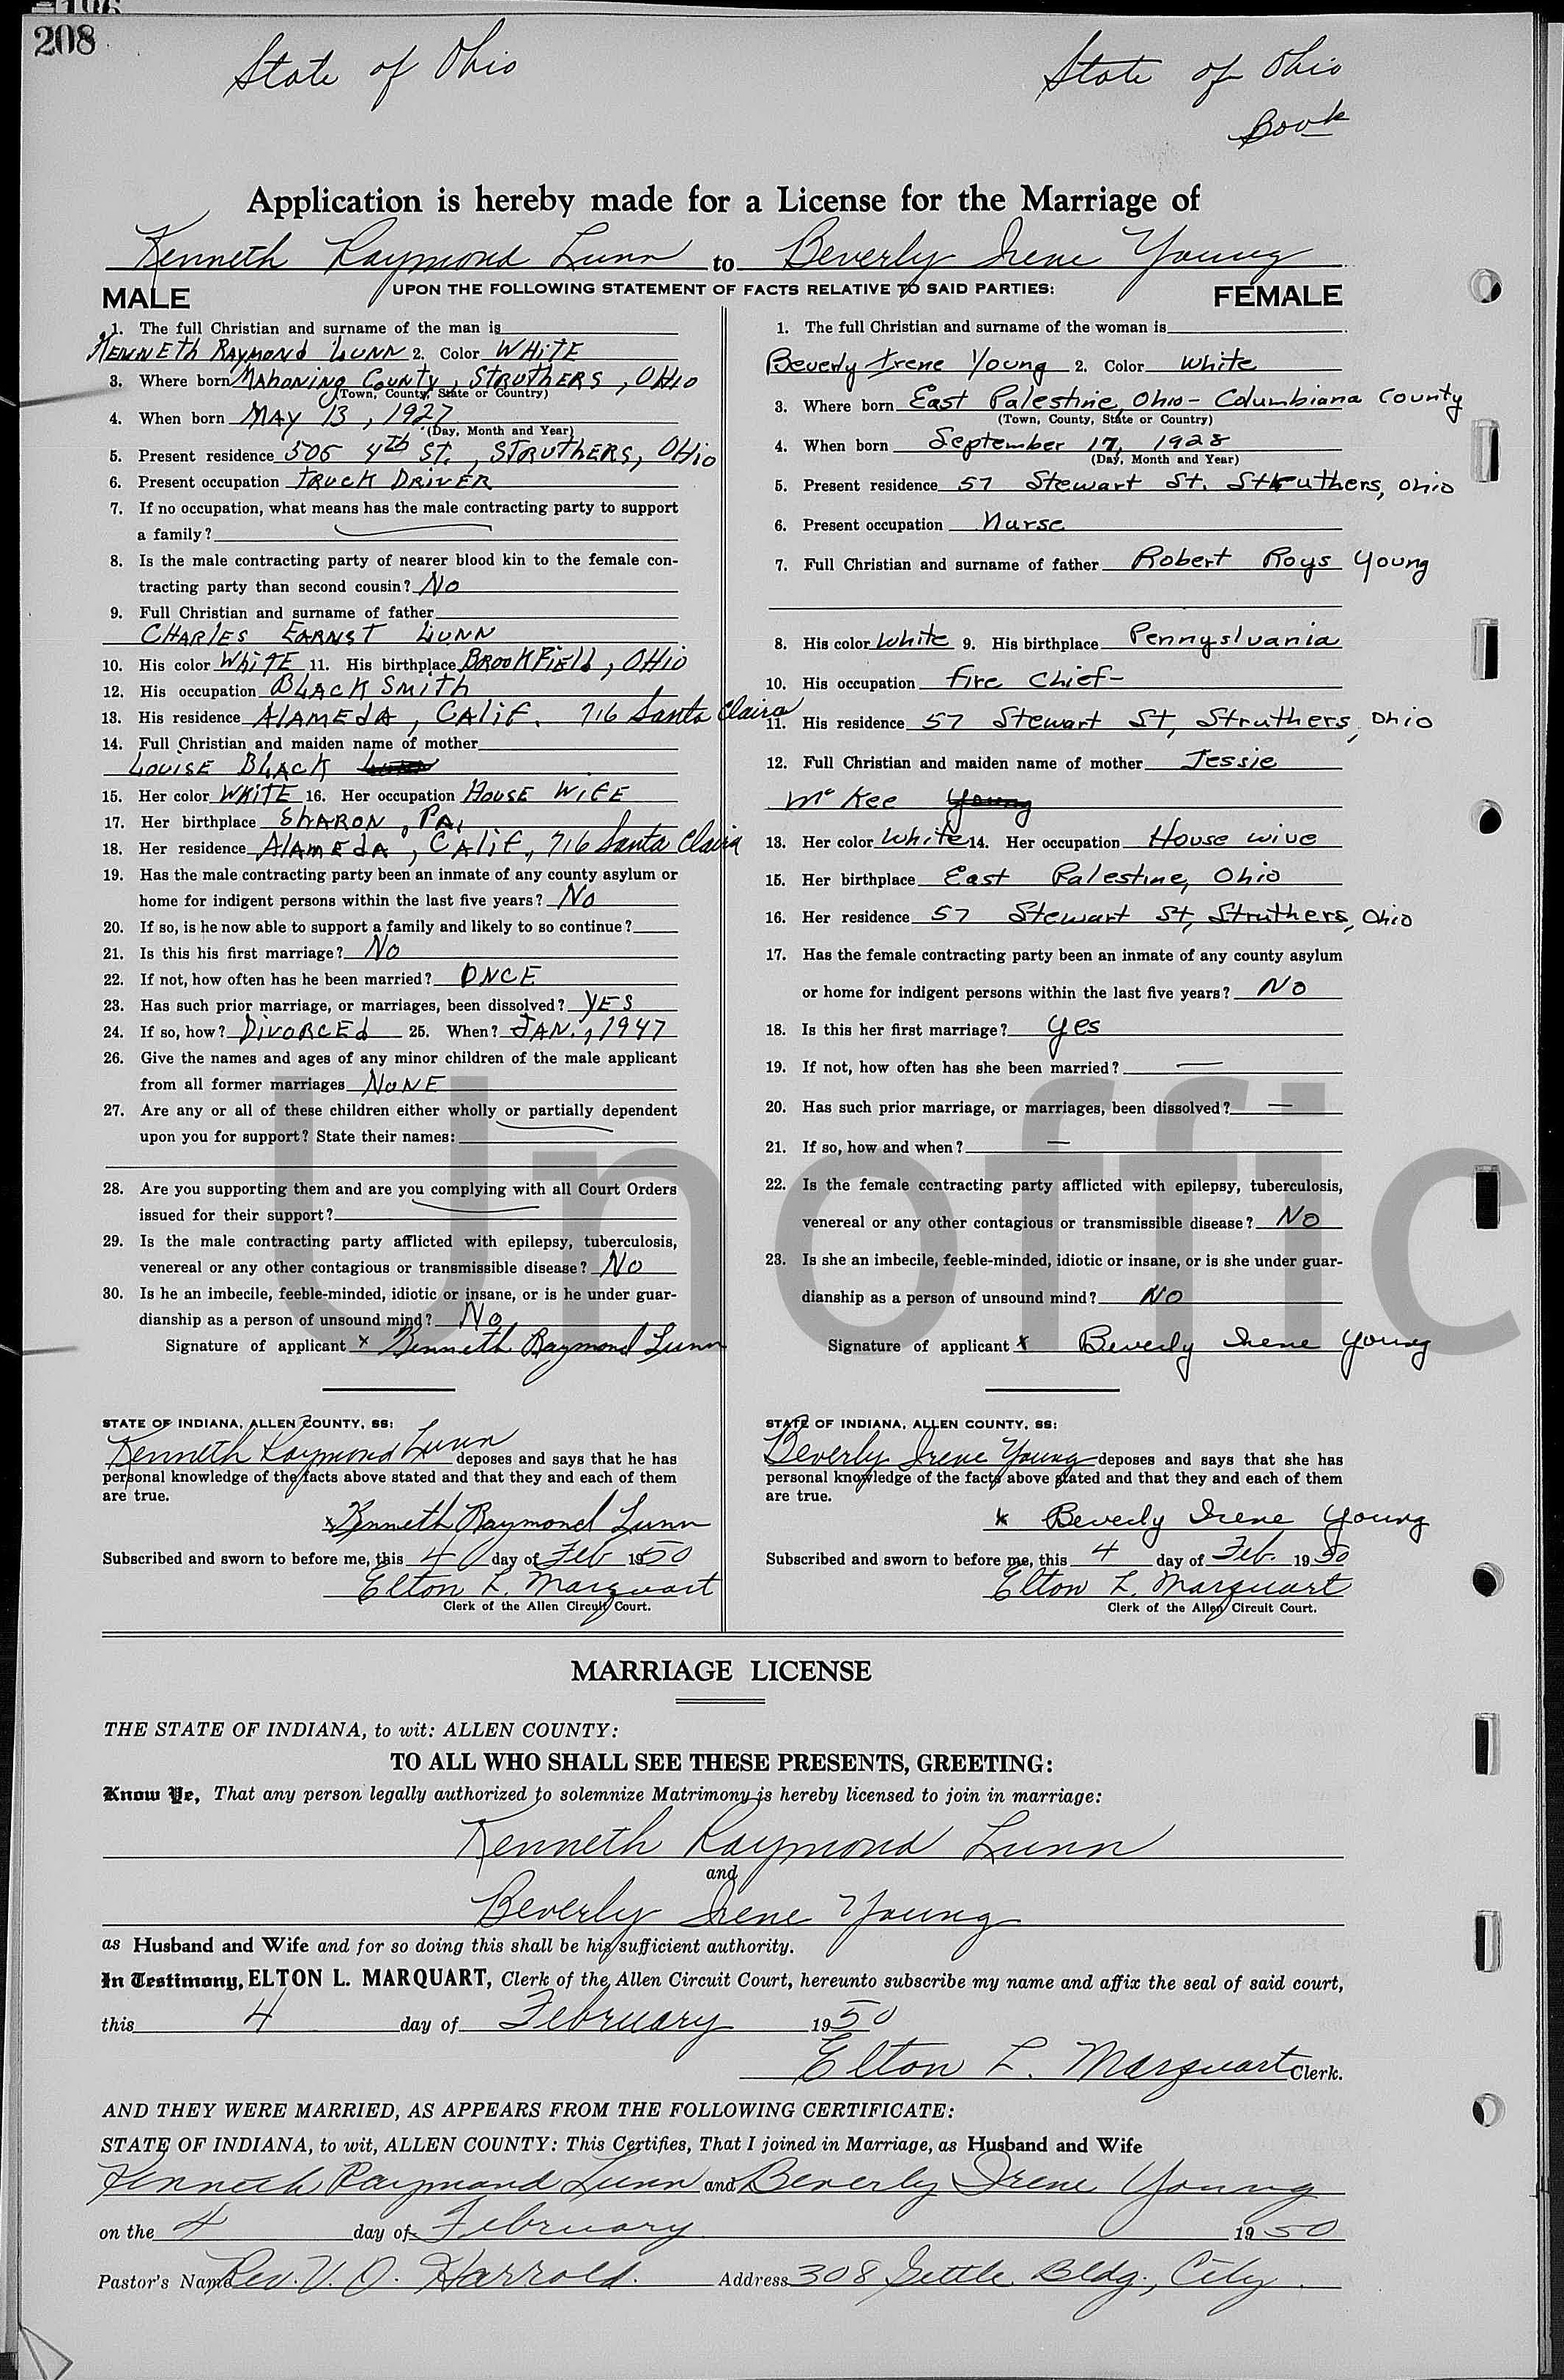 208
State of Ohio
State of Ohio
Book
Application is hereby made for a License for the Marriage of
Kenneth Raymond Lunn to Beverly Irene Young
UPON THE FOLLOWING STATEMENT OF FACTS RELATIVE TO SAID PARTIES:
MALE
1. The full Christian and surname of the man is
KENNETH RAYMOND LUNN 2. Color WHITE
3. Where born MAHONING COUNTY, STRUTHERS, OHIO
(Town, County, State or Country)
4. When born MAY 13, 1927
(Day, Month and Year)
5. Present residence 506 4th ST., STRUTHERS, OHIO
6. Present occupation TRUCK DRIVER
7. If no occupation, what means has the male contracting party to support
a family?
8. Is the male contracting party of nearer blood kin to the female con-
tracting party than second cousin? No
9. Full Christian and surname of father
CHARLES EARNST LUNN
10. His color WHITE 11. His birthplace BROOKFIELD, OHIO
12. His occupation BLACK SMITH
13. His residence ALAMEDA, CALIF. 716 Santa Claira
14. Full Christian and maiden name of mother
LOUISE BLACK
15. Her color WHITE 16. Her occupation HOUSE WIFE
17. Her birthplace SHARON, PA,
18. Her residence ALAMEDA, CALIF., 716 Santa Claira
19. Has the male contracting party been an inmate of any county asylum or
home for indigent persons within the last five years? No
20. If so, is he now able to support a family and likely to so continue?
21. Is this his first marriage? No
22. If not, how often has he been married? ONCE
23. Has such prior marriage, or marriages, been dissolved? YES
24. If so, how? DIVORCED 25. When? JAN., 1947
26. Give the names and ages of any minor children of the male applicant
from all former marriages NONE
27. Are any or all of these children either wholly or partially dependent
upon you for support? State their names:
28. Are you supporting them and are you complying with all Court Orders
issued for their support?
29. Is the male contracting party afflicted with epilepsy, tuberculosis,
venereal or any other contagious or transmissible disease? No
30. Is he an imbecile, feeble-minded, idiotic or insane, or is he under guar-
dianship as a person of unsound mind? No
Signature of applicant x Kenneth Raymond Lunn
STATE OF INDIANA, ALLEN COUNTY, SS:
Kenneth Raymond Lunn deposes and says that he has
personal knowledge of the facts above stated and that they and each of them
are true.
x Kenneth Raymond Lunn
Subscribed and sworn to before me, this 4 day of Feb 1950
Elton L. Marquart
Clerk of the Allen Circuit Court.
FEMALE
1. The full Christian and surname of the woman is
Beverly Irene Young 2. Color White
3. Where born East Palestine, Ohio - Columbiana County
(Town, County, State or Country)
4. When born September 17, 1928
(Day, Month and Year)
5. Present residence 57 Stewart St. Struthers, Ohio
6. Present occupation Nurse
7. Full Christian and surname of father Robert Roys Young
8. His color White 9. His birthplace Pennyslvania
10. His occupation Fire Chief-
11. His residence 57 Stewart St, Struthers, Ohio
12. Full Christian and maiden name of mother Jessie
Mc Kee Young
13. Her color White 14. Her occupation House wive
15. Her birthplace East Palestine, Ohio
16. Her residence 57 Stewart St, Struthers, Ohio
17. Has the female contracting party been an inmate of any county asylum
or home for indigent persons within the last five years? No
18. Is this her first marriage? yes
19. If not, how often has she been married? —
20. Has such prior marriage, or marriages, been dissolved? —
21. If so, how and when? —
22. Is the female contracting party afflicted with epilepsy, tuberculosis,
venereal or any other contagious or transmissible disease? No
23. Is she an imbecile, feeble-minded, idiotic or insane, or is she under guar-
dianship as a person of unsound mind? No
Signature of applicant x Beverly Irene Young
STATE OF INDIANA, ALLEN COUNTY, SS:
Beverly Irene Young deposes and says that she has
personal knowledge of the facts above stated and that they and each of them
are true.
x Beverly Irene Young
Subscribed and sworn to before me, this 4 day of Feb. 1950
Elton L. Marquart
Clerk of the Allen Circuit Court.
Unoffic
MARRIAGE LICENSE
THE STATE OF INDIANA, to wit: ALLEN COUNTY:
TO ALL WHO SHALL SEE THESE PRESENTS, GREETING:
Know Ye, That any person legally authorized to solemnize Matrimony is hereby licensed to join in marriage:
Kenneth Raymond Lunn
and
Beverly Irene Young
as Husband and Wife and for so doing this shall be his sufficient authority.
In Testimony, ELTON L. MARQUART, Clerk of the Allen Circuit Court, hereunto subscribe my name and affix the seal of said court,
this 4 day of February 1950
Elton L. Marquart Clerk.
AND THEY WERE MARRIED, AS APPEARS FROM THE FOLLOWING CERTIFICATE:
STATE OF INDIANA, to wit, ALLEN COUNTY: This Certifies, That I joined in Marriage, as Husband and Wife
Kenneth Raymond Lunn and Beverly Irene Young
on the 4 day of February 1950
Pastor's Name Rev. V. O. Harrold. Address 308 Settle Bldg., City.